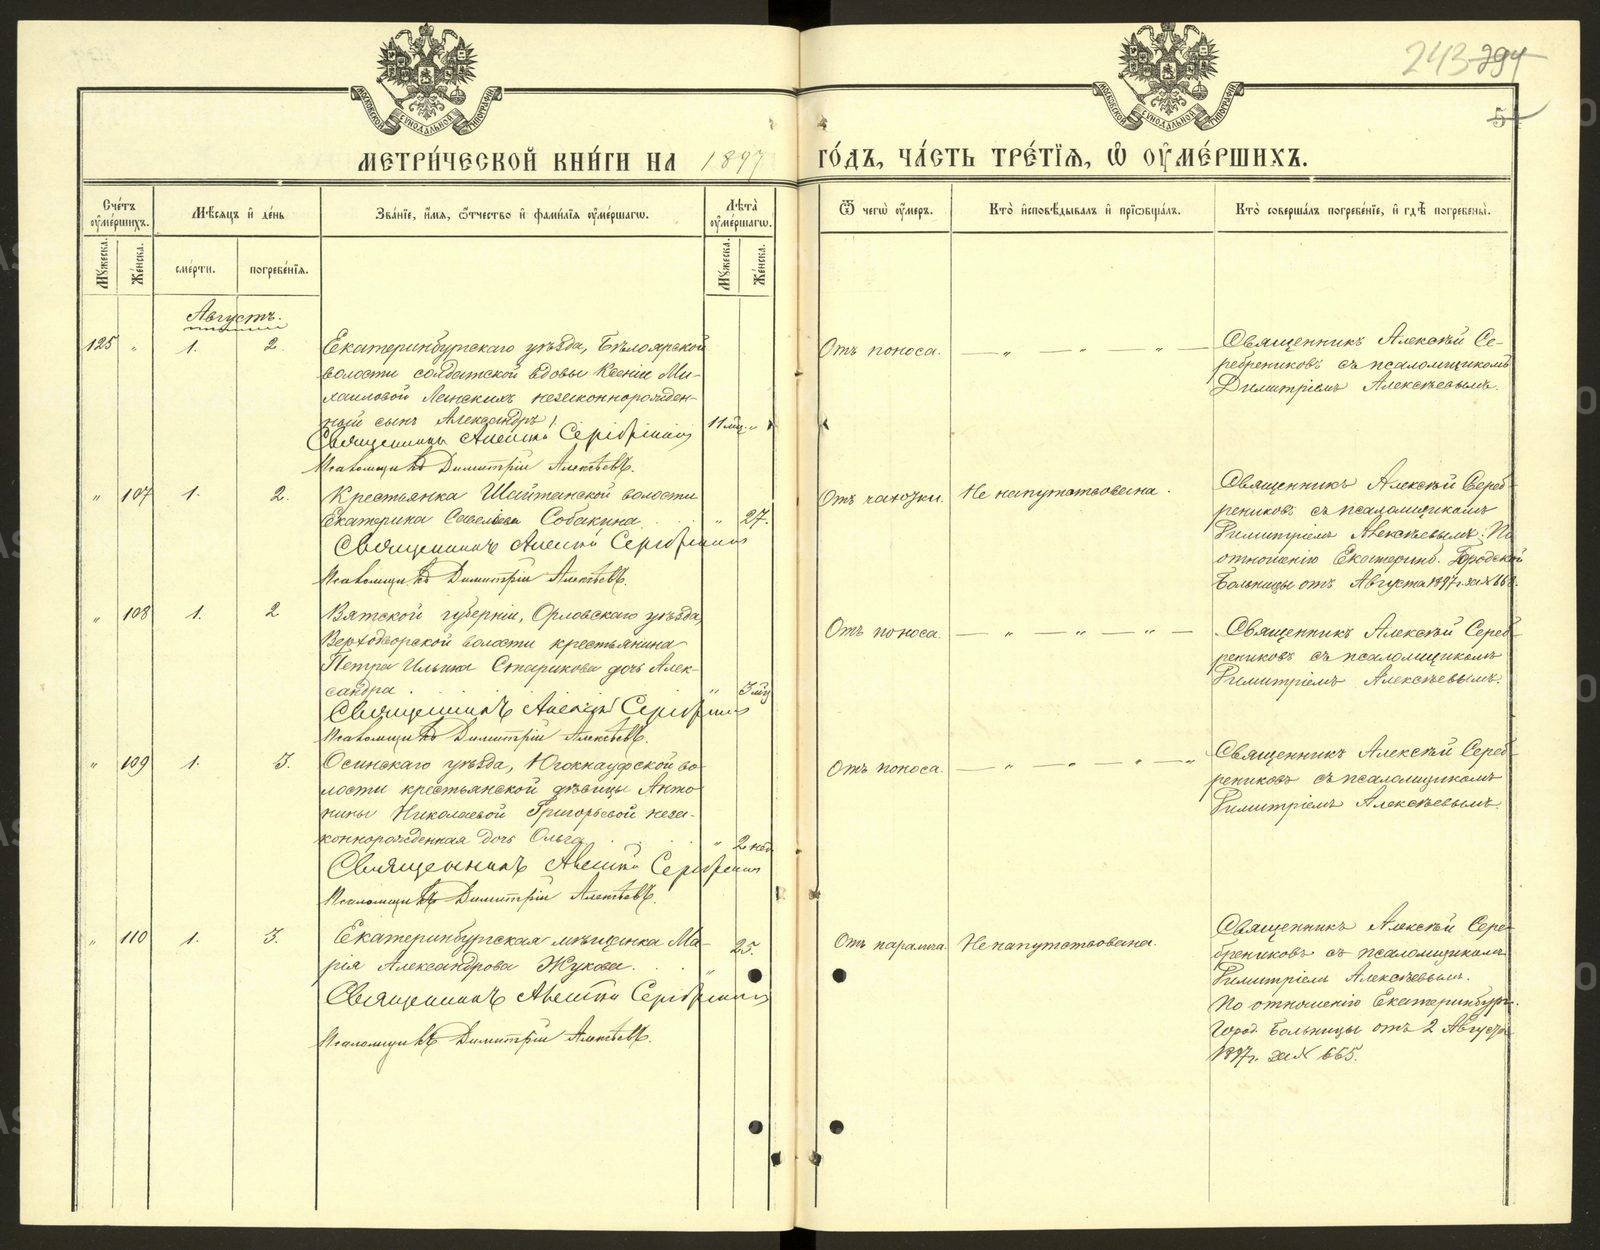 243 294
5
МЕТРИ́ЧЕСКОЙ КНИ́ГИ НА 1897 ГО́ДЪ, ЧА́СТЬ ТРЕ́ТІѦ, Ѿ ОУ҆МЕ́РШИХЪ.
Сче́тъ оу҆ме́ршихъ.
Мꙋжеска.
Же́нска.
Мѣ́сяцъ и҆ де́нь
сме́рти.
погребе́нїѧ.
Зва́нїе, и҆́мѧ, ѻ҆́тчество и҆ фами́лїѧ оу҆ме́ршагѡ.
Лѣ́та оу҆ме́ршагѡ.
Мꙋжеска.
Же́нска.
Ѿ чегѡ̀ оу҆́меръ.
Кто̀ и҆сповѣ́дывалъ и҆ прїѡбща́лъ.
Кто̀ соверша́лъ погребе́нїе, и҆ гдѣ̀ погребены̀.
Августъ.
125 " 1. 2.
Екатеринбургскаго уѣзда, Бѣлоярской
волости солдатской вдовы Ксеніи Ми-
хаиловой Ленскихъ незаконнорожден-
ный сынъ Александръ
11 мц. "
Священникъ Алексѣй Серебрениковъ
Псаломщикъ Димитрій Алексѣевъ.
Отъ поноса.
— " — " — " —
Священникъ Алексѣй Се-
ребрениковъ съ псаломщикомъ
Димитріемъ Алексѣевымъ.
" 107 1. 2.
Крестьянка Шайтанской волости
Екатерина Савельева Собакина
" 27.
Священникъ Алексѣй Серебрениковъ
Псаломщикъ Димитрій Алексѣевъ.
Отъ чахотки.
Не напутствована.
Священникъ Алексѣй Сереб-
рениковъ съ псаломщикомъ
Димитріемъ Алексѣевымъ. По
отношенію Екатеринб. Городской
Больницы отъ Августа 1897 г. за №
" 108 1. 2
Вятской губерніи, Орловскаго уѣзда,
Верходворской волости крестьянина
Петра Ильина Старикова дочь Алек-
сандра
" 3 мц
Священникъ Алексѣй Серебрениковъ
Псаломщикъ Димитрій Алексѣевъ.
Отъ поноса.
— " — " — " —
Священникъ Алексѣй Сереб-
рениковъ съ псаломщикомъ
Димитріемъ Алексѣевымъ.
" 109 1. 3.
Осинскаго уѣзда, Югокнауфской во-
лости крестьянской дѣвицы Анто-
нины Николаевой Григорьевой неза-
коннорожденная дочь Ольга
" 2 нед
Священникъ Алексѣй Серебрениковъ
Псаломщикъ Димитрій Алексѣевъ.
Отъ поноса.
— " — " — " — "
Священникъ Алексѣй Сереб-
рениковъ съ псаломщикомъ
Димитріемъ Алексѣевымъ.
" 110 1. 3.
Екатеринбургская мѣщанка Ма-
рія Александрова Жукова.
" 25.
Священникъ Алексѣй Серебрениковъ
Псаломщикъ Димитрій Алексѣевъ.
Отъ паралича.
Не напутствована.
Священникъ Алексѣй Сере-
брениковъ съ псаломщикомъ
Димитріемъ Алексѣевымъ.
По отношенію Екатеринбург.
Город. Больницы отъ 2 Августа
1897 г. за № 665.